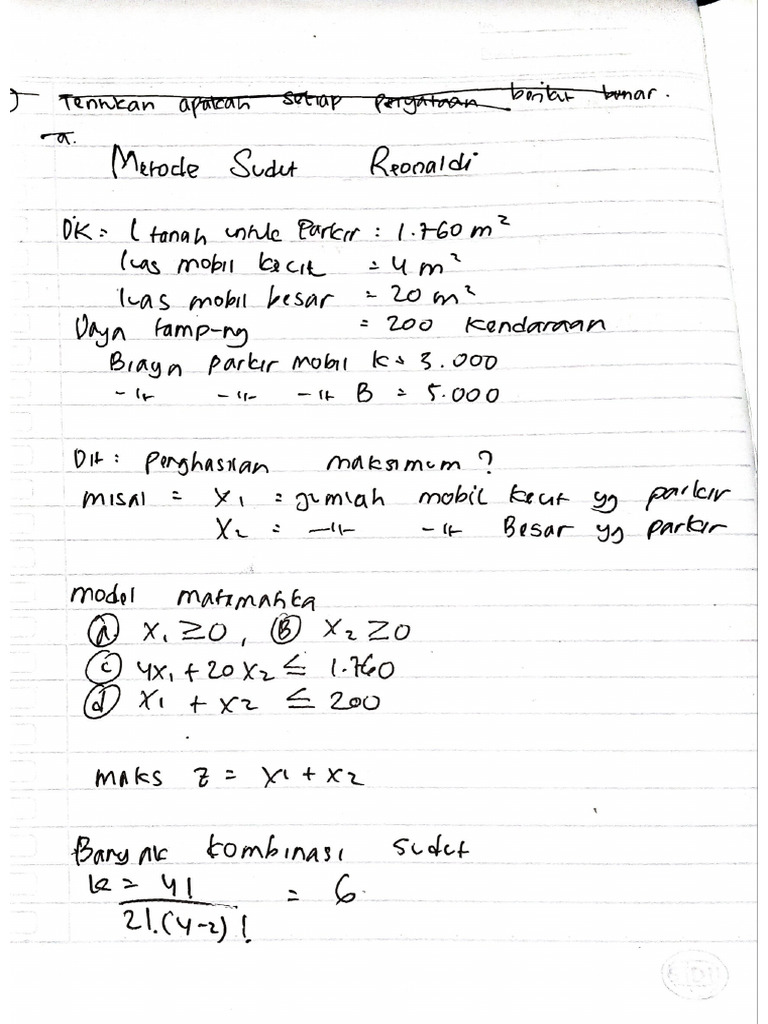 Tentukan apakah setiap pernyataan berikut benar.
a.
Metode Sudut Reonaldi
DK = L tanah untuk Parkir : 1.760 m²
luas mobil kecil = 4 m²
luas mobil besar = 20 m²
Daya tampung = 200 kendaraan
Biaya parkir mobil k = 3.000
-11- -11- -11 B = 5.000
Dit : penghasilan maksimum ?
misal = X1 = jumlah mobil kecil yg parkir
X2 = -11- -11 Besar yg parkir
model matematika
(a) X1 ≥ 0, (B) X2 ≥ 0
(c) 4X1 + 20X2 ≤ 1.760
(d) X1 + X2 ≤ 200
maks z = X1 + X2
Banyak kombinasi sudut
k = 4! / 2!.(4-2)! = 6